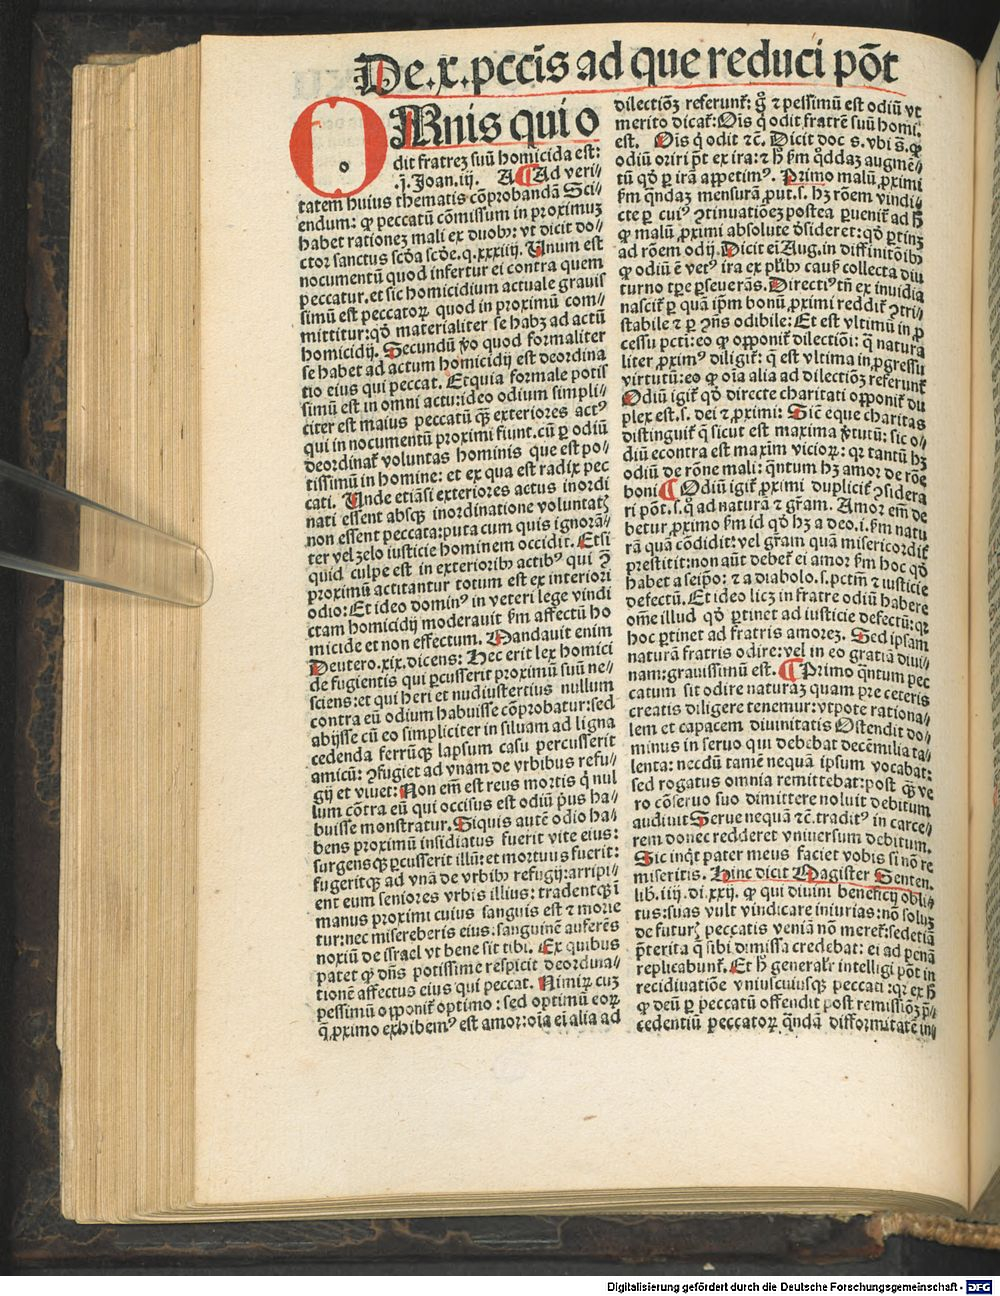 De.x.pccīs ad que reduci pōt
OMnis qui o
dit fratreꝫ suū homicida est:
.j. Joan. iij. A Ad veri⸗
tatem huius thematis cōprobandā Sci⸗
endum: ꝙ peccatū cōmissum in proximuꝫ
habet rationeꝫ mali ex duobꝰ: vt dicit do⸗
ctor sanctus scd̄a scd̄e. q. xxxiiij. Unum est
nocumentū quod infertur ei contra quem
peccatur. et sic homicidium actuale grauis
simū est peccatoꝝ quod in proximū com⸗
mittitur: qd̄ materialiter se habꝫ ad actū
homicidij. Secundū ꝟo quod formaliter
se habet ad actum homicidij est deordina
tio eius qui peccat. Et quia formale potis
simū est in omni actu: ideo odium simpli⸗
citer est maius peccatū qꝫ exteriores actꝰ
qui in nocumentū proximi fiunt. cū ꝑ odiū
deordinat᷑ voluntas hominis que est po⸗
tissimū in homine: et ex qua est radix pec
cati. Unde etiāsi exteriores actus inordi
nati essent absqꝫ inordinatione voluntatꝭ
non essent peccata: puta cum quis ignorā⸗
ter vel zelo iusticie hominem occidit. Et si
quid culpe est in exterioribꝰ actibꝰ qui ꝯ̄
proximū actitantur totum est ex interiori
odio: Et ideo dominꝰ in veteri lege vindi
ctam homicidij moderauit ẜm affectū ho
micide et non effectum. Mandauit enim
Deutero. xix. dicens: Hec erit lex homici
de fugientis qui ꝑcusserit proximū suū ne⸗
sciens: et qui heri et nudiustertius nullum
contra eū odium habuisse cōprobatur: sed
abijsse cū eo simpliciter in siluam ad ligna
cedenda ferrūqꝫ lapsum casu percusserit
amicū: ꝯfugiet ad vnam de vrbibus refu⸗
gij et viuet: Non em̄ est reus mortis ꝙ nul
lum cōtra eū qui occisus est odiū pꝰus ha⸗
buisse monstratur. Siquis autē odio ha⸗
bens proximū insidiatus fuerit vite eius:
surgensqꝫ ꝑcusserit illū: et mortuus fuerit:
fugeritqꝫ ad vnā de vrbibꝰ refugij: arripi⸗
ent eum seniores vrbis illius: tradentqꝫ ī
manus proximi cuius sanguis est ⁊ morie
tur: nec misereberis eius: sanguinē auferēs
noxiū de israel vt bene sit tibi. Ex quibus
patet ꝙ dn̄s potissime respicit deordina⸗
tionē affectus eius qui peccat. Nimiꝝ cuꝫ
pessimū opponit᷑ optimo: sed optimū eoꝝ
q̄ ꝓximo exhibemꝰ est amor: oīa ei alia ad
dilectiōꝫ referunt᷑: gͦ ⁊ pessimū est odiū vt
merito dicat᷑: Ois q̄ odit fratrē suū homi.
est. Ois q̄ odit ⁊c̄. Dicit doc s. vbi s̄. ꝙ
odiū oriri pōt ex ira: ⁊ h̄ ẜm qd̄daꝫ augmē⸗
tū qd̄ ꝑ irā appetimꝰ. Primo malū ꝓximi
ẜm qn̄daꝫ mensurā ꝓut. s. hꝫ rōem vindi⸗
cte ꝑ cuiꝰ ꝯtinuatiōeꝫ postea ꝑuenit᷑ ad h̄
ꝙ malū ꝓximi absolute ꝯsideret: qd̄ ꝑtinꝫ
ad rōem odij. Dicit ei Aug. in diffinitōibꝰ
ꝙ odiū ē vetꝰ ira ex plꝰibꝰ causꝭ collecta diu
turno tꝑe ꝑseuerās. Directiꝰ tn̄ ex inuidia
nascit᷑ ꝑ quā ip̄m bonū ꝓximi reddit᷑ ꝯtri⸗
stabile ⁊ ꝑ ꝯn̄s odibile: Et est vltimū in ꝓ
cessu pcti: eo ꝙ opponit᷑ dilectiōi: q̄ natura
liter ꝓximꝰ diligit᷑: q̄ est vltima in ꝓgressu
virtutū: eo ꝙ oīa alia ad dilectiōꝫ referunt᷑
Odiū igit᷑ qd̄ directe charitati opponit᷑ du
plex est. s. dei ⁊ ꝓximi: Sic̄ eque charitas
distinguit᷑ q̄ sicut est maxima ꝟtutū: sic o⸗
diū econtra est maxim vicioꝝ: qꝛ tantū hꝫ
odiū de rōne mali: qn̄tum hꝫ amor de rōe
boni Odiū igit᷑ ꝓximi duplicit᷑ ꝯsidera
ri pōt. s. qͦ ad naturā ⁊ gr̄am. Amor em̄ de
betur ꝓximo ẜm id qd̄ hꝫ a deo. i. ẜm natu
rā quā cōdidit: vel gr̄am quā misericordit᷑
prestitit: non aūt debet᷑ ei amor ẜm hoc qd̄
habet a seip̄o: ⁊ a diabolo. s. pctm̄ ⁊ iusticie
defectū. Et ideo licꝫ in fratre odiū habere
om̄e illud qd̄ ꝑtinet ad iusticie defectū: qꝛ
hoc ꝑtinet ad fratris amoreꝫ. Sed ipsam
naturā fratris odire: vel in eo gratiā diui⸗
nam: grauissimū est. Primo qn̄tum pec
catum sit odire naturaꝫ quam pre ceteris
creatis diligere tenemur: vtpote rationa⸗
lem et capacem diuinitatis Ostendit do⸗
minus in seruo qui debebat decēmilia ta⸗
lenta: necdū tamē nequā ipsum vocabat:
sed rogatus omnia remittebat: post qꝫ ve
ro cōseruo suo dimittere noluit debitum
audiuit Serue nequā ⁊c̄. traditꝰ in carce⸗
rem donec redderet vniuersum debitum.
Sic inqt pater meus faciet vobis si nō re
miseritis. Hinc dicit Magister Senten.
lib. iiij. di. xxij. ꝙ qui diuini beneficij obli⸗
tus: suas vult vindicare iniurias: nō soluꝫ
de futurꝭ peccatis veniā nō meret᷑: sed etiā
p̄terita q̄ sibi dimissa credebat: ei ad penā
replicabunt᷑. Et h̄ generalr̄ intelligi pōt in
recidiuatiōe vniuscuiusqꝫ peccati: qꝛ ex h̄
ꝙ deū ꝑ peccatū offendit post remissiōꝫ p̄⸗
cedentiū peccatoꝝ qn̄dā difformitatē in⸗
Digitalisierung gefördert durch die Deutsche Forschungsgemeinschaft - DFG